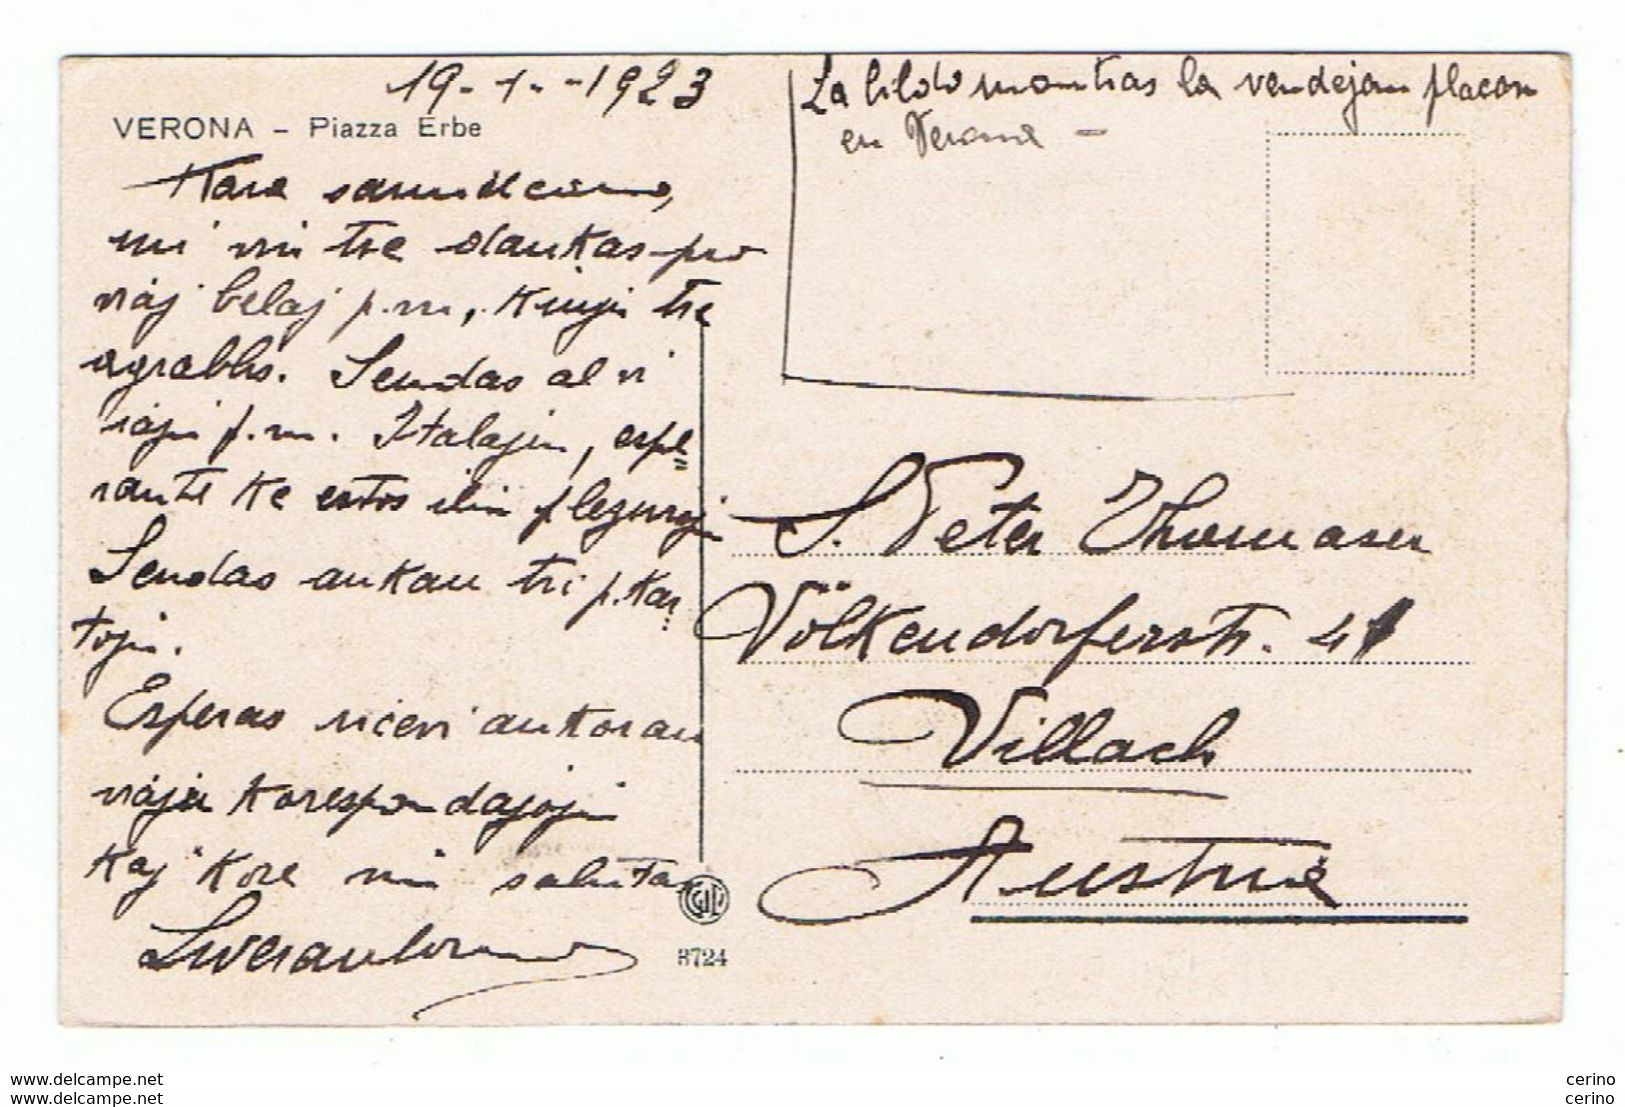 19-1-1923
VERONA – Piazza Erbe
Kara samideano,
mi vin tre dankas pro
viaj belaj p.m, kiujn tre
agrablis. Sendas al vi
iajn p.m. Italajn, espe=
rante ke estos ilin plezuroj
Sendas ankau tri p.kar
tojn.
Esperas ricevi ankorau
viajn korespondajojn
kaj kore vin salutas
La bildo montras la vendejan placon
en Verona –
S. Peter Thomasen
Völkendorferstr. 41
Villach
Austria
8724
www.delcampe.net
www.delcampe.net
cerino
cerino